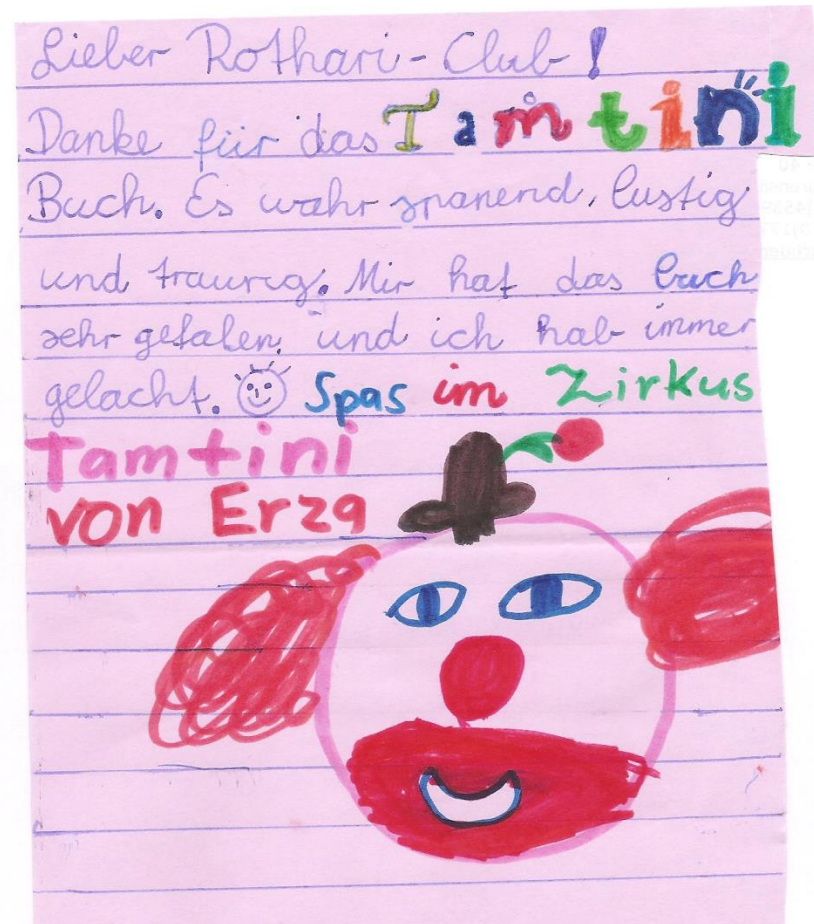 Lieber Rothari-Club!
Danke für das Tamtini
Buch. Es wahr spanend, lustig
und traurig. Mir hat das buch
sehr gefalen. und ich hab immer
gelacht. Spas im Zirkus
Tamtini
von Erza